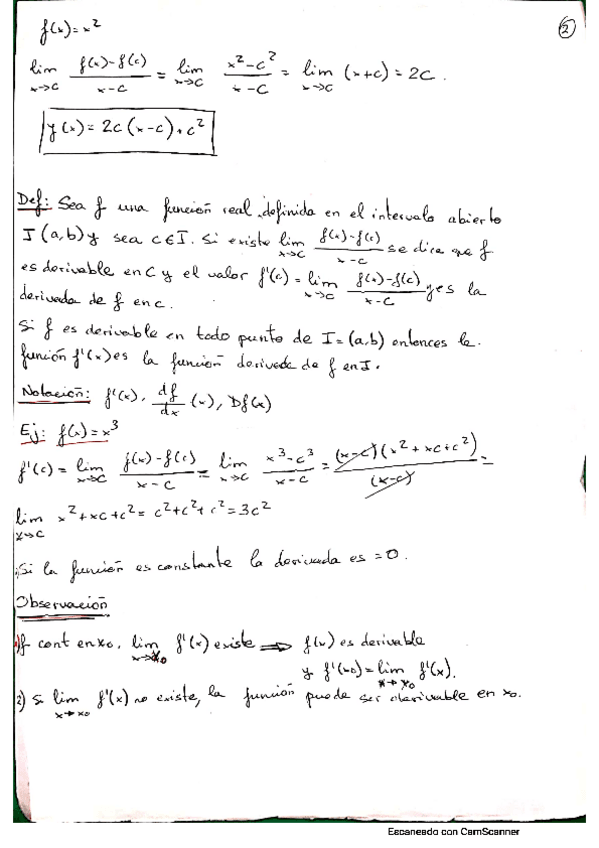 2
f(x)=x²
lim x→c (f(x)-f(c))/(x-c) = lim x→c (x²-c²)/(x-c) = lim x→c (x+c) = 2c.
y(x) = 2c(x-c)+c²
Def: Sea f una función real definida en el intervalo abierto
I(a,b) y sea c∈I. Si existe lim x→c (f(x)-f(c))/(x-c) se dice que f
es derivable en c y el valor f'(c) = lim x→c (f(x)-f(c))/(x-c) y es la
derivada de f en c.
Si f es derivable en todo punto de I=(a,b) entonces la
función f'(x) es la función derivada de f en I.
Notación: f'(x), df/dx (x), Df(x)
Ej: f(x)=x³
f'(c) = lim x→c (f(x)-f(c))/(x-c) = lim x→c (x³-c³)/(x-c) = (x-c)(x²+xc+c²)/(x-c) =
lim x→c x²+xc+c² = c²+c²+c² = 3c²
Si la función es constante la derivada es =0.
Observación
1) f cont en x₀, lim x→x₀ f'(x) existe ⇒ f(x) es derivable
y f'(x₀) = lim x→x₀ f'(x).
2) Si lim x→x₀ f'(x) no existe, la función puede ser derivable en x₀.
Escaneado con CamScanner